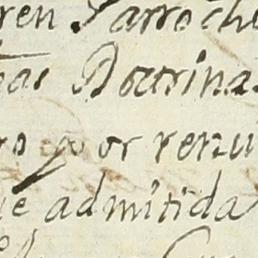 ren Parroche
tas Doctrinas
ro por renu
ue admitida